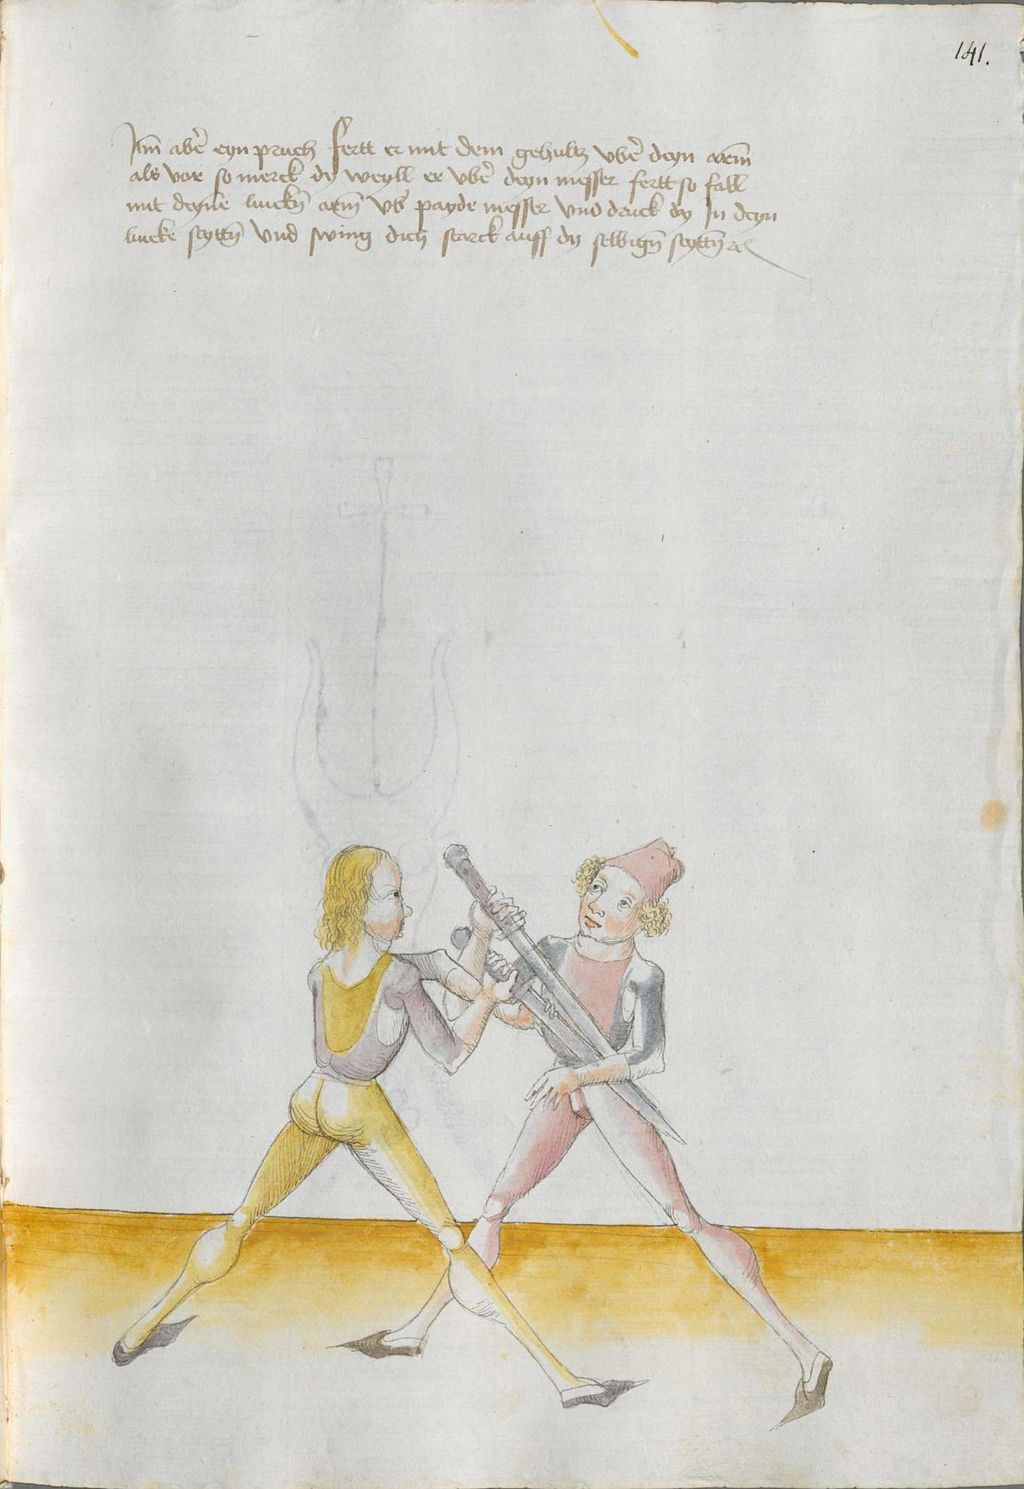 141.
Jtm̄ abe᷑ eyn pruch fertt er mit dem gehultz vbe᷑ deyn arm̄
als vor so merck dy weyll er vbe᷑ deyn messer fertt so fall
mit deyne᷑ linckn̄ arm̄ vb᷑ payde messer vnd druck dy Jn deyn
lincke seyttn̄ vnd swing dich starck auff dy selbign̄ seyttn̄ ⁊c